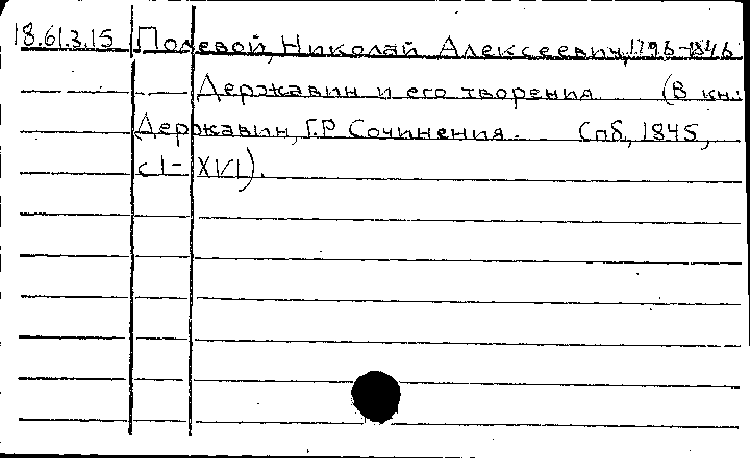 18.61.3.15 Полевой, Николай Алексеевич, 1796-1846
Державин и его творения (В кн:
Державин, Г.Р Сочинения. Спб, 1845,
с I - XVI).